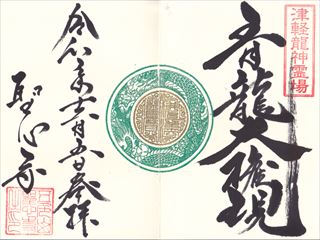 津軽龍神霊場
青龍大権現
令和元年六月五日奉拝
聖心寺